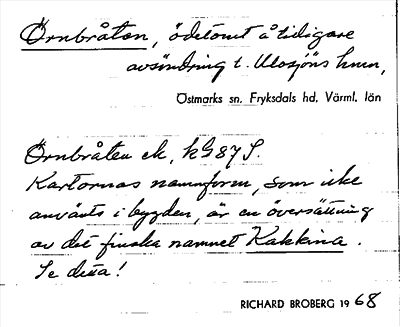 Örnbråten, ödetomt å tidigare
avsöndring t. Ulvsjöns hmn,
Östmarks sn. Fryksdals hd. Värml. län
Örnbråten ek, kG87S.
Kartornas namnform, som icke
använts i bygden, är en översättning
av det finska namnet Kakkina.
Se detta!
RICHARD BROBERG 1968